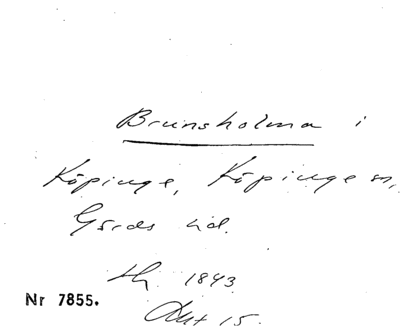 Brunsholma i
Köpinge, Köpinge sn,
Gärds hd.
1843
Nr 7855.
15.